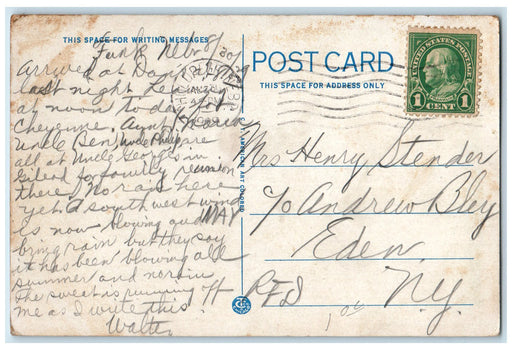 THIS SPACE FOR WRITING MESSAGES
Funk Nebr 8/
Arrived at
last night
at noon to day for
Cheyenne. Aunt
Uncle Ben Uncle Philip are
all at Uncle George's in
Gilead for family reunion
there. No rain here
yet. A south west wind
is now blowing and MAY
bring rain but they say
it has been blowing all
summer and no rain
The sweat is running off
me as I write this.
Walter
POST CARD
THIS SPACE FOR ADDRESS ONLY
UNITED STATES POSTAGE
FRANKLIN
1 CENT 1
Mrs Henry Stender
c/o Andrew Bley
Eden
N.Y.
RFD
1.00
C.T. AMERICAN ART COLORED